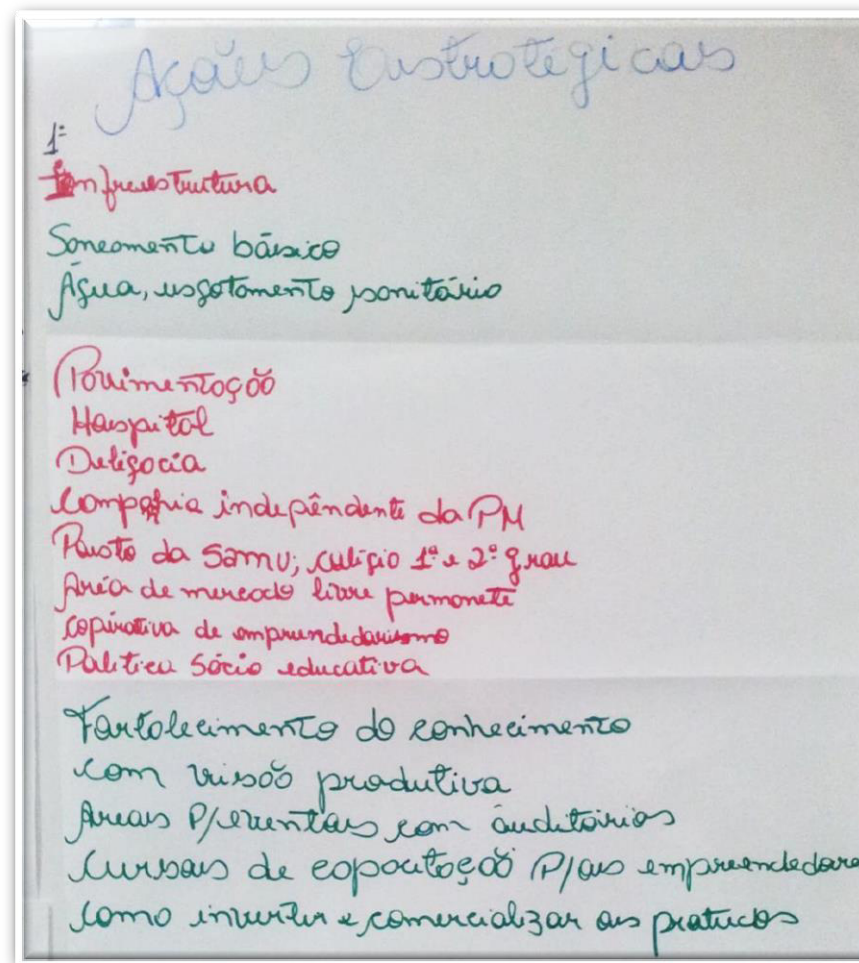 Ações Enstrotegicas
1º
Infraestrutura
Soneomento básico
Água, esgotamento sonitário
Pavimentoção
Hospital
Deligocia
Compahia indepêndente da PM
Posto da Samu; culigio 1º e 2º grau
Aréa de mercado livre permonete
copirativa de empreendedorismo
Politica Sócio educativa
Fortolecimento do conhecimento
com visão produtiva
Areas P/eventos com auditórios
Cursos de copocitoção P/os empreendedore
como inverter e comercializar os pratucos